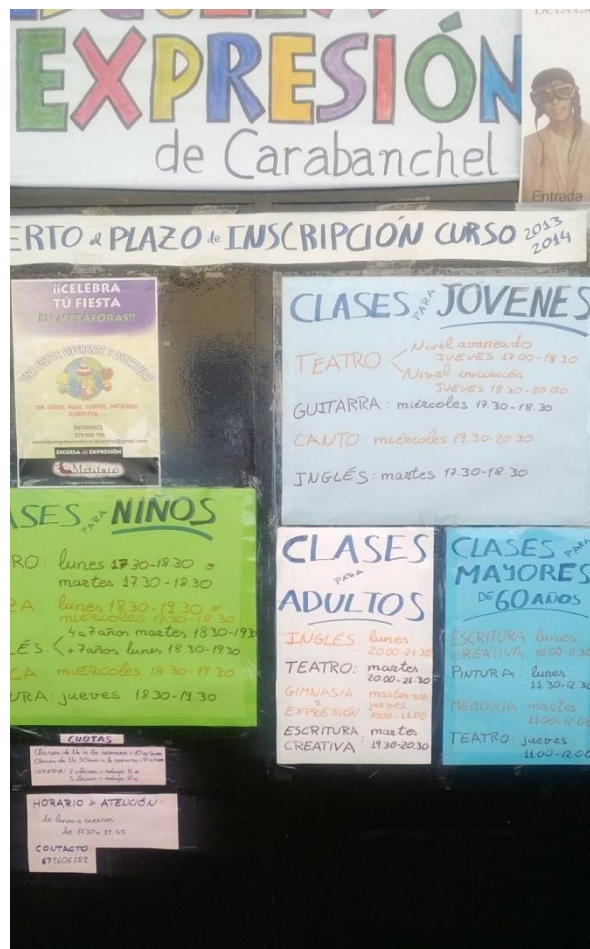 EXPRESIÓN
de Carabanchel
Entrada
PLAZO de INSCRIPCIÓN CURSO 2013
2014
¡¡CELEBRA
TÚ FIESTA
EN METÁFORAS!!
UNA FIESTA DIFERENTE Y
CON JUEGOS, MAGIA, CUENTOS, PINTACARAS,
INFÓRMATE
ESCUELA de EXPRESIÓN
Metáforas
CLASES PARA JÓVENES
TEATRO < Nivel avanzado
JUEVES 17.00-18.30
Nivel iniciación
JUEVES 18.30-20.00
GUITARRA: miércoles 17.30-18.30
CANTO miércoles 19.30-20.30
INGLÉS: martes 17.30-18.30
PARA NIÑOS
lunes 17.30-18.30 o
martes 17.30-18.30
lunes 18.30-19.30 o
miércoles 17.30-18.30
4 a 7 años martes 18.30-1930
+7años lunes 18.30-1930
miércoles 18.30-19.30
jueves 18.30-19.30
CLASES
PARA
ADULTOS
INGLÉS lunes
20.00-21.30
TEATRO: martes
20.00-21.30
GIMNASIA martes y/o
Y jueves
EXPRESIÓN 10.00-11.00
ESCRITURA martes
CREATIVA 19.30-20.30
CLASES PARA
MAYORES
DE 60 AÑOS
ESCRITURA lunes
CREATIVA
PINTURA: lunes
11.30-12.30
MEMORIA: martes
11.00-12.00
TEATRO: jueves
11.00-12.00
CUOTAS
HORARIO DE ATENCIÓN:
de lunes a viernes
de 17.30 a 19.45
CONTACTO